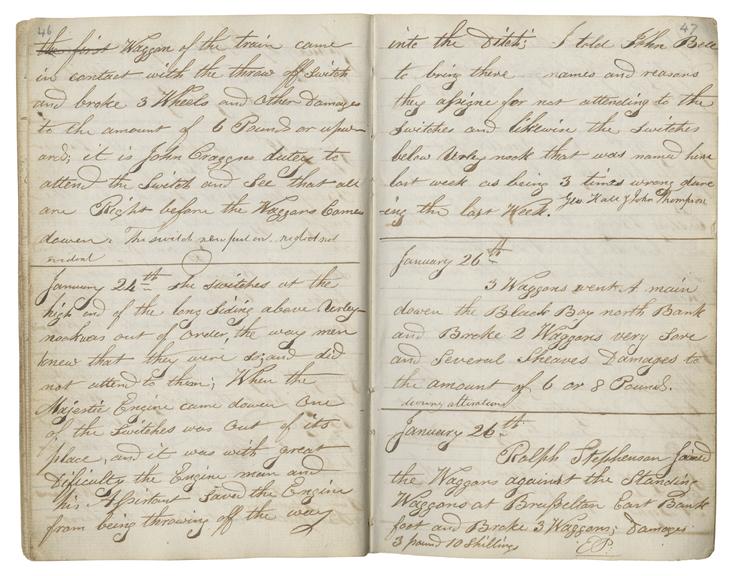 46
the first Waggon of the train came
in contact with the throw off Switch
and broke 3 Wheels and other Damages
to the amount of 6 Pounds or upw-
ard; it is John Craggns duties to
attend the Switch and See that all
are Right before the Waggons Came
dowen. The switch new put on neglect not
January 24th The Switches at the
high end of the long Siding above Urley-
nook was out of order, the way men
knew that they were so; and did
not attend to them; When the
Majestic Engine came dowen One
of the Switches was Out of its
place, and it was with great
Difficulty the Engine man and
his Assistant Saved the Engine
from being throwing off the way
47
into the Ditch; I told John Bell
to bring there names and reasons
they assigne for not attending to the
Switches and likewise the Switches
below Urley nook that was named here
last week as being 3 times wrong dure
-ing the last Week. Geo. Hall & John Thompson
January 26th
3 Waggons went A main
dowen the Black Boy north Bank
and Broke 2 Waggons very Sore
and Several Sheaves Damages to
the amount of 6 or 8 Pounds.
during alterations
January 26th
Ralph Stephenson Jamed
the Waggons against the Standing
Waggons at Brusselton East Bank
foot and Broke 3 Waggons; Damages
3 pound 10 Shillings